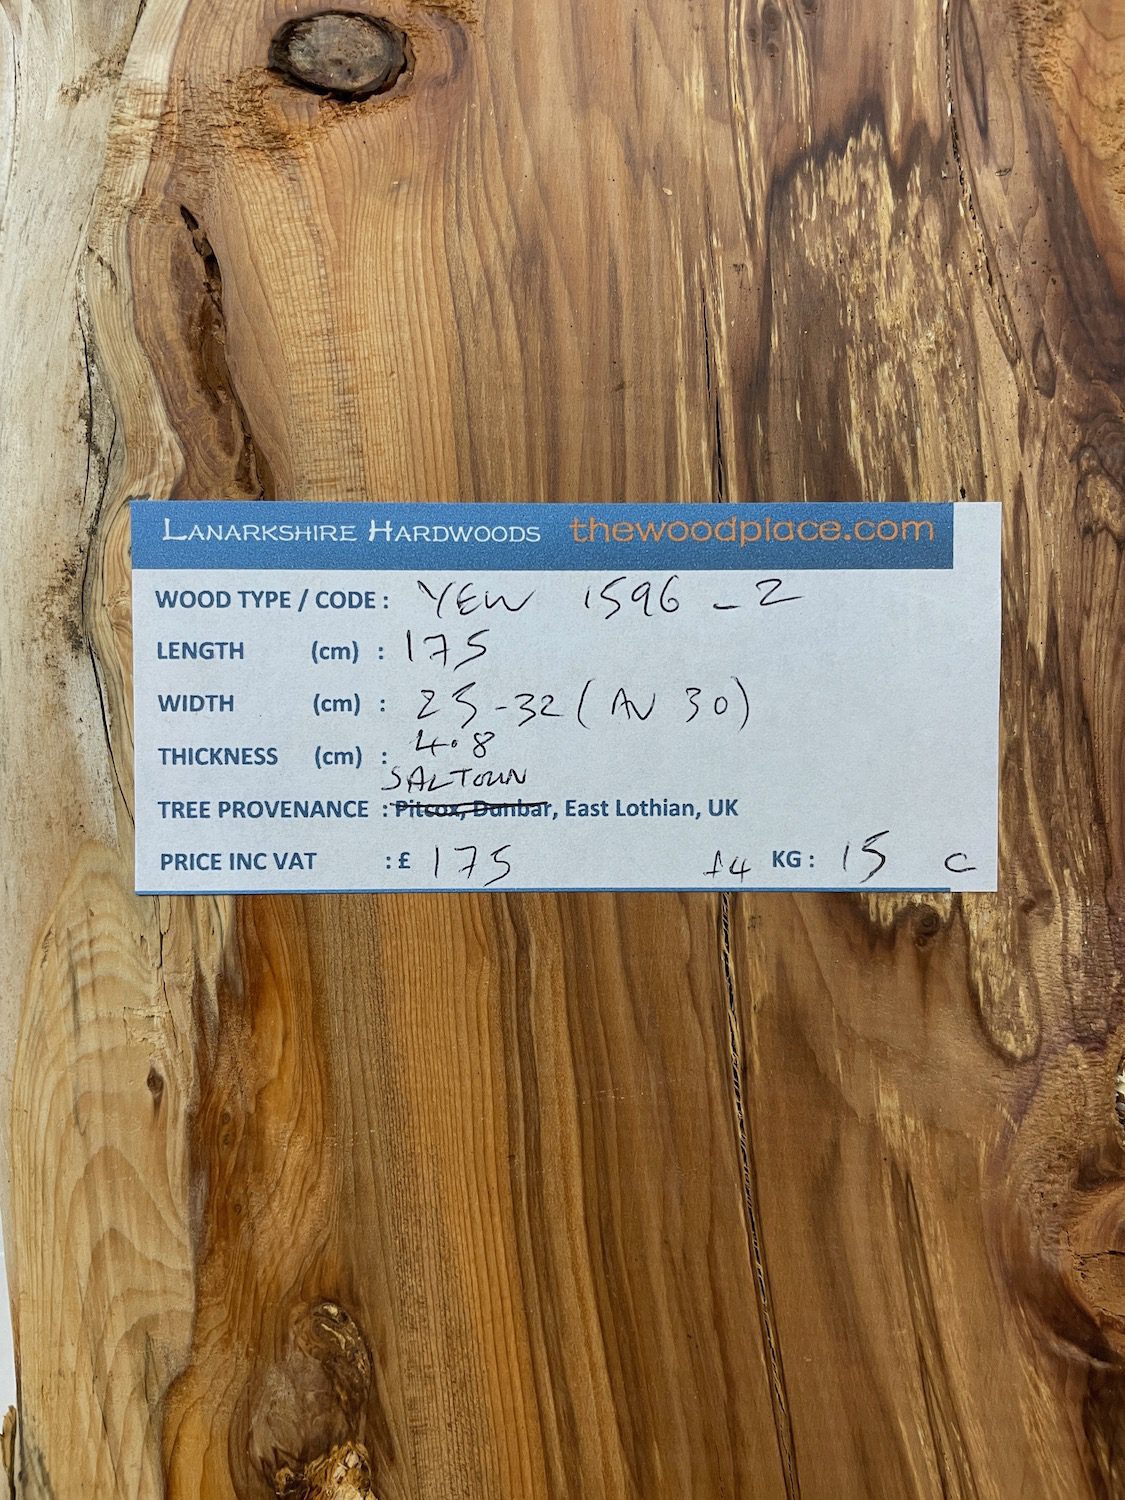 LANARKSHIRE HARDWOODS thewoodplace.com
WOOD TYPE / CODE : YEW 1596 - 2
LENGTH (cm) : 175
WIDTH (cm) : 25-32 (AV 30)
THICKNESS (cm) : 4.8
SALTOUN
TREE PROVENANCE : Pitcox, Dunbar, East Lothian, UK
PRICE INC VAT : £ 175 KG : 15 C